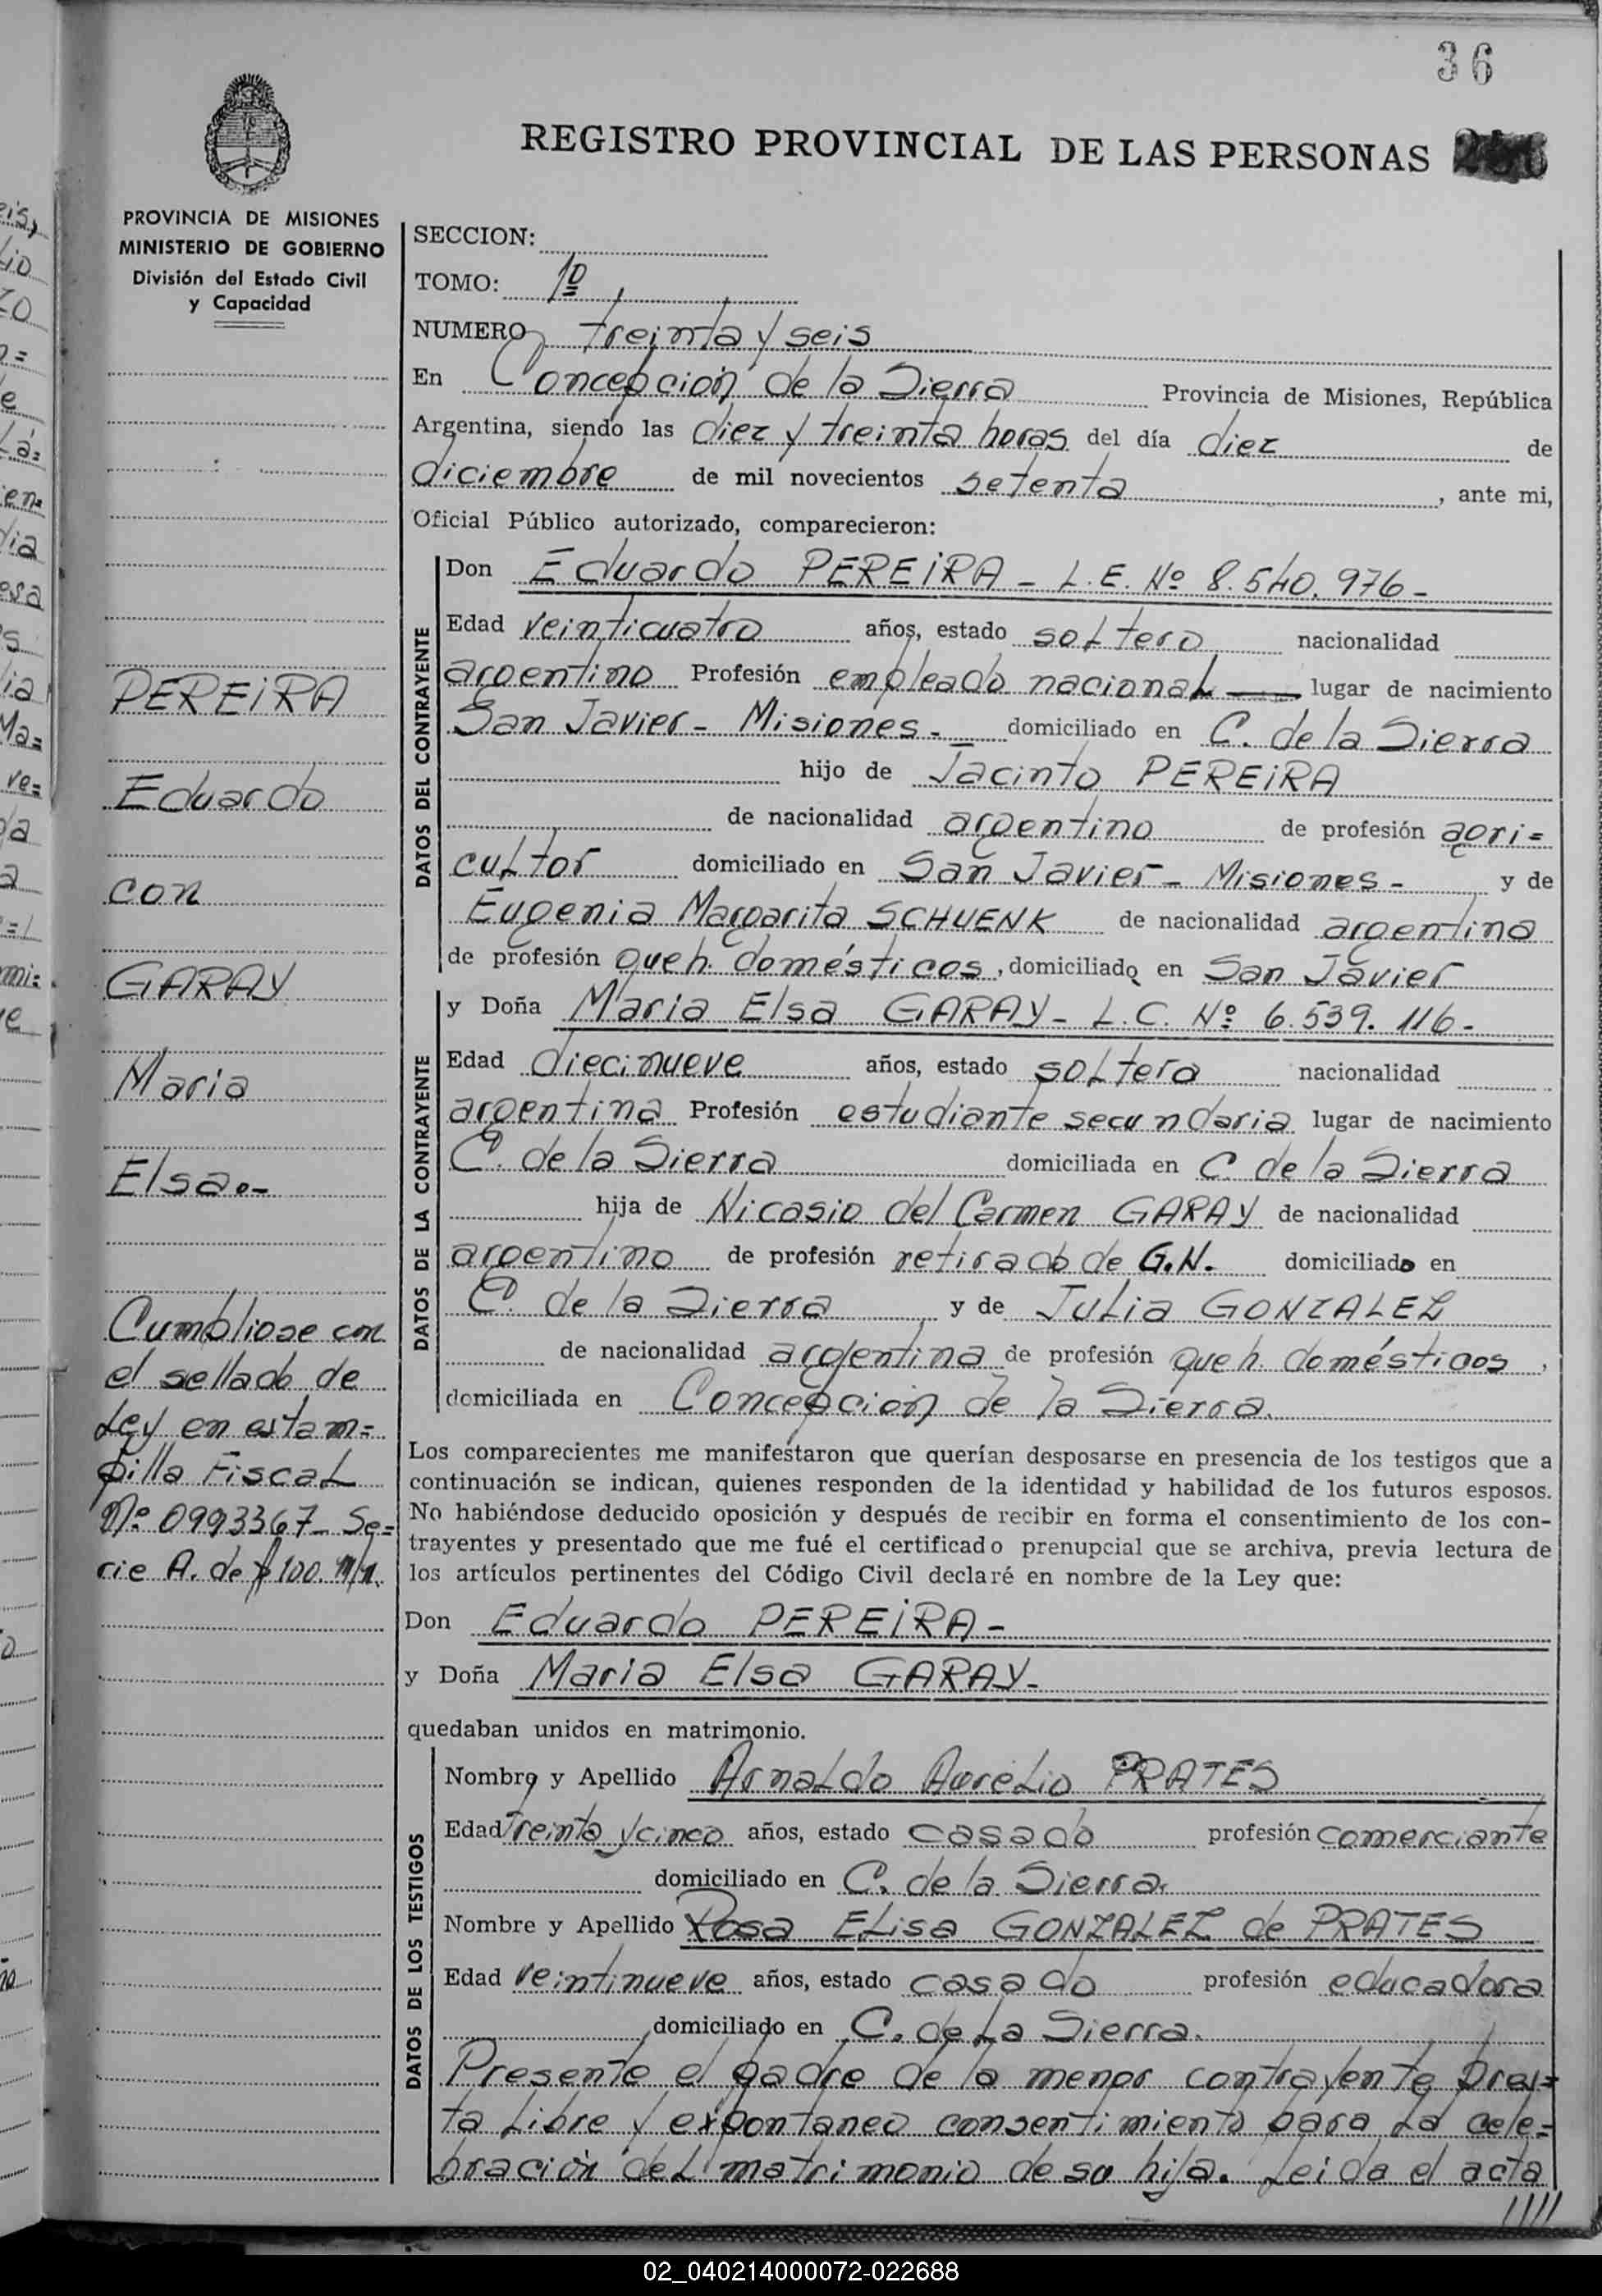 36
REGISTRO PROVINCIAL DE LAS PERSONAS
PROVINCIA DE MISIONES
MINISTERIO DE GOBIERNO
División del Estado Civil
y Capacidad
PEREIRA
Eduardo
con
GARAY
Maria
Elsa.-
Cumpliose con
el sellado de
Ley en estam=
pilla Fiscal
Nº 0993367- Se=
rie A. de $ 100. m/n.
SECCION:
TOMO: 1º
NUMERO treinta y seis
En Concepción de la Sierra Provincia de Misiones, República
Argentina, siendo las diez y treinta horas del día diez de
diciembre de mil novecientos setenta, ante mi,
Oficial Público autorizado, comparecieron:
DATOS DEL CONTRAYENTE
Don Eduardo PEREIRA - L.E. Nº 8.540.976-
Edad veinticuatro años, estado soltero nacionalidad
argentino Profesión empleado nacional — lugar de nacimiento
San Javier - Misiones - domiciliado en C. de la Sierra
hijo de Jacinto PEREIRA
de nacionalidad argentino de profesión agri=
cultor domiciliado en San Javier - Misiones - y de
Eugenia Margarita SCHUENK de nacionalidad argentina
de profesión queh. domésticos, domiciliado en San Javier
DATOS DE LA CONTRAYENTE
y Doña Maria Elsa GARAY - L.C. Nº 6.539.116-
Edad diecinueve años, estado soltera nacionalidad
argentina Profesión estudiante secundaria lugar de nacimiento
C. de la Sierra domiciliada en C. de la Sierra
hija de Nicasio del Carmen GARAY de nacionalidad
argentino de profesión retirado de G.N. domiciliado en
C. de la Sierra y de Julia GONZALEZ
de nacionalidad argentina de profesión queh. domésticos,
domiciliada en Concepción de la Sierra.
Los comparecientes me manifestaron que querían desposarse en presencia de los testigos que a
continuación se indican, quienes responden de la identidad y habilidad de los futuros esposos.
No habiéndose deducido oposición y después de recibir en forma el consentimiento de los con-
trayentes y presentado que me fué el certificado prenupcial que se archiva, previa lectura de
los artículos pertinentes del Código Civil declaré en nombre de la Ley que:
Don Eduardo PEREIRA-
y Doña Maria Elsa GARAY-
quedaban unidos en matrimonio.
DATOS DE LOS TESTIGOS
Nombre y Apellido Arnaldo Aurelio PRATES
Edad treinta y cinco años, estado casado profesión comerciante
domiciliado en C. de la Sierra.
Nombre y Apellido Rosa Elisa GONZALEZ de PRATES
Edad veintinueve años, estado casado profesión educadora
domiciliado en C. de La Sierra.
Presente el padre de la menor contrayente pres=
ta libre y expontaneo consentimiento para la cele=
bración del matrimonio de su hija. Leida el acta
////
02_040214000072-022688